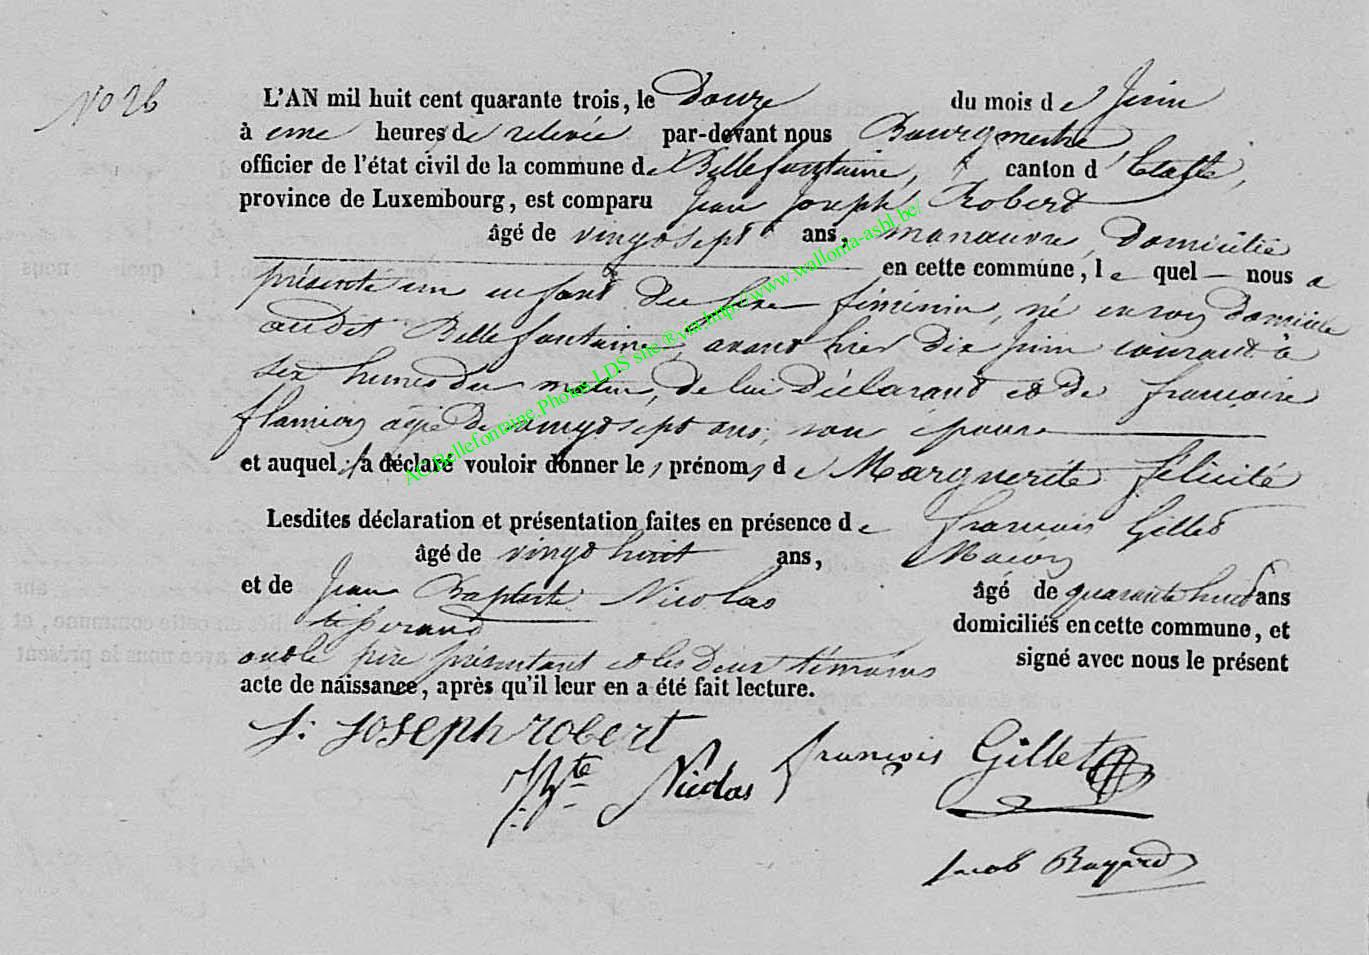 No 26
L'AN mil huit cent quarante trois, le Douze du mois de Juin
à une heures de relevée par-devant nous Bourgmestre
officier de l'état civil de la commune de Bellefontaine, canton d'Etalle,
province de Luxembourg, est comparu Jean Joseph Robert
âgé de vingt sept ans, manœuvre, Domicilié
en cette commune, le quel nous a
présenté un enfant du sexe féminin, né en son Domicile
audit Bellefontaine, avant hier dix juin courant à
six heures du matin, de lui Déclarant et de francoise
flamion agée de vingt sept ans, son épouse
et auquel il a déclaré vouloir donner les prénoms de Marguerite félicité
Lesdites déclaration et présentation faites en présence de francois Gillet
âgé de vingt huit ans, Macon
et de Jean Baptiste Nicolas âgé de quarante huit ans
tisserand domiciliés en cette commune, et
ont le père présentant et les deux témoins signé avec nous le présent
acte de naissance, après qu'il leur en a été fait lecture.
J: Joseph robert
J: Bte Nicolas françois Gillet
Jacob Bayard
AC Bellefontaine.Photos LDS site ® via http://www.wallonia-asbl.be/